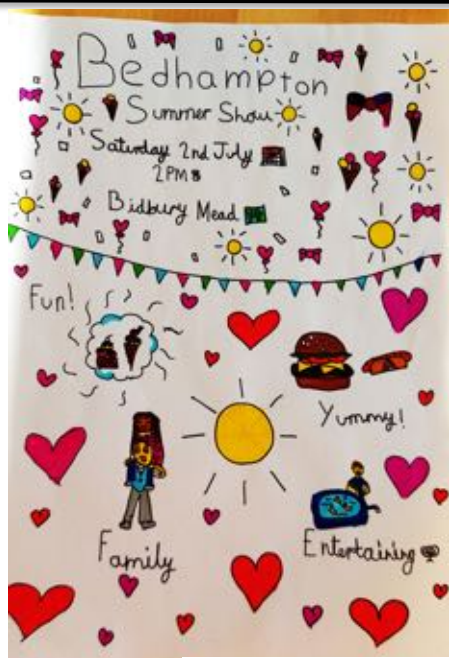 Bedhampton
Summer Show
Saturday 2nd July
2PM
Bidbury Mead
Fun!
Yummy!
Family
Entertaining